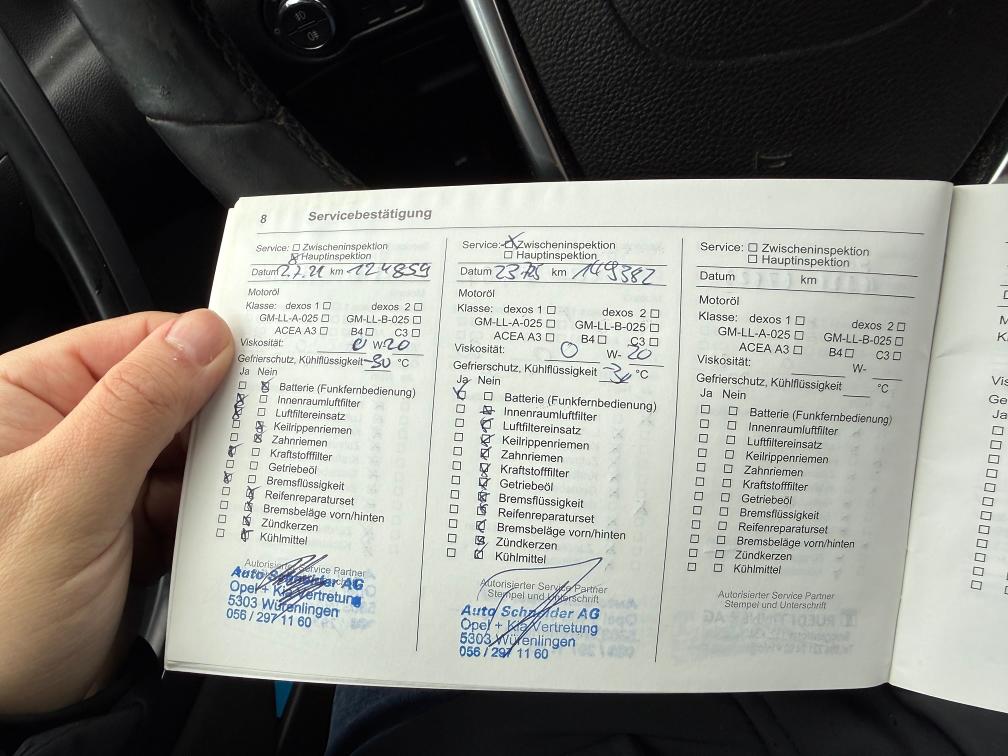 8 Servicebestätigung
Service: Zwischeninspektion
Hauptinspektion
Datum 2.7.21 km 124859
Motoröl
Klasse: dexos 1 dexos 2
GM-LL-A-025 GM-LL-B-025
ACEA A3 B4 C3
Viskosität: 0 W- 20
Gefrierschutz, Kühlflüssigkeit -30 °C
Ja Nein
Batterie (Funkfernbedienung)
Innenraumluftfilter
Luftfiltereinsatz
Keilrippenriemen
Zahnriemen
Kraftstofffilter
Getriebeöl
Bremsflüssigkeit
Reifenreparaturset
Bremsbeläge vorn/hinten
Zündkerzen
Kühlmittel
Autorisierter Service Partner
Auto Schneider AG
Opel + Kia Vertretung
5303 Würenlingen
056 / 297 11 60
Service: Zwischeninspektion
Hauptinspektion
Datum km 149382
Motoröl
Klasse: dexos 1 dexos 2
GM-LL-A-025 GM-LL-B-025
ACEA A3 B4 C3
Viskosität: 0 W- 20
Gefrierschutz, Kühlflüssigkeit °C
Ja Nein
Batterie (Funkfernbedienung)
Innenraumluftfilter
Luftfiltereinsatz
Keilrippenriemen
Zahnriemen
Kraftstofffilter
Getriebeöl
Bremsflüssigkeit
Reifenreparaturset
Bremsbeläge vorn/hinten
Zündkerzen
Kühlmittel
Autorisierter Service Partner
Stempel und Unterschrift
Auto Schneider AG
Opel + Kia Vertretung
5303 Würenlingen
056 / 297 11 60
Service: Zwischeninspektion
Hauptinspektion
Datum km
Motoröl
Klasse: dexos 1 dexos 2
GM-LL-A-025 GM-LL-B-025
ACEA A3 B4 C3
Viskosität: W-
Gefrierschutz, Kühlflüssigkeit °C
Ja Nein
Batterie (Funkfernbedienung)
Innenraumluftfilter
Luftfiltereinsatz
Keilrippenriemen
Zahnriemen
Kraftstofffilter
Getriebeöl
Bremsflüssigkeit
Reifenreparaturset
Bremsbeläge vorn/hinten
Zündkerzen
Kühlmittel
Autorisierter Service Partner
Stempel und Unterschrift